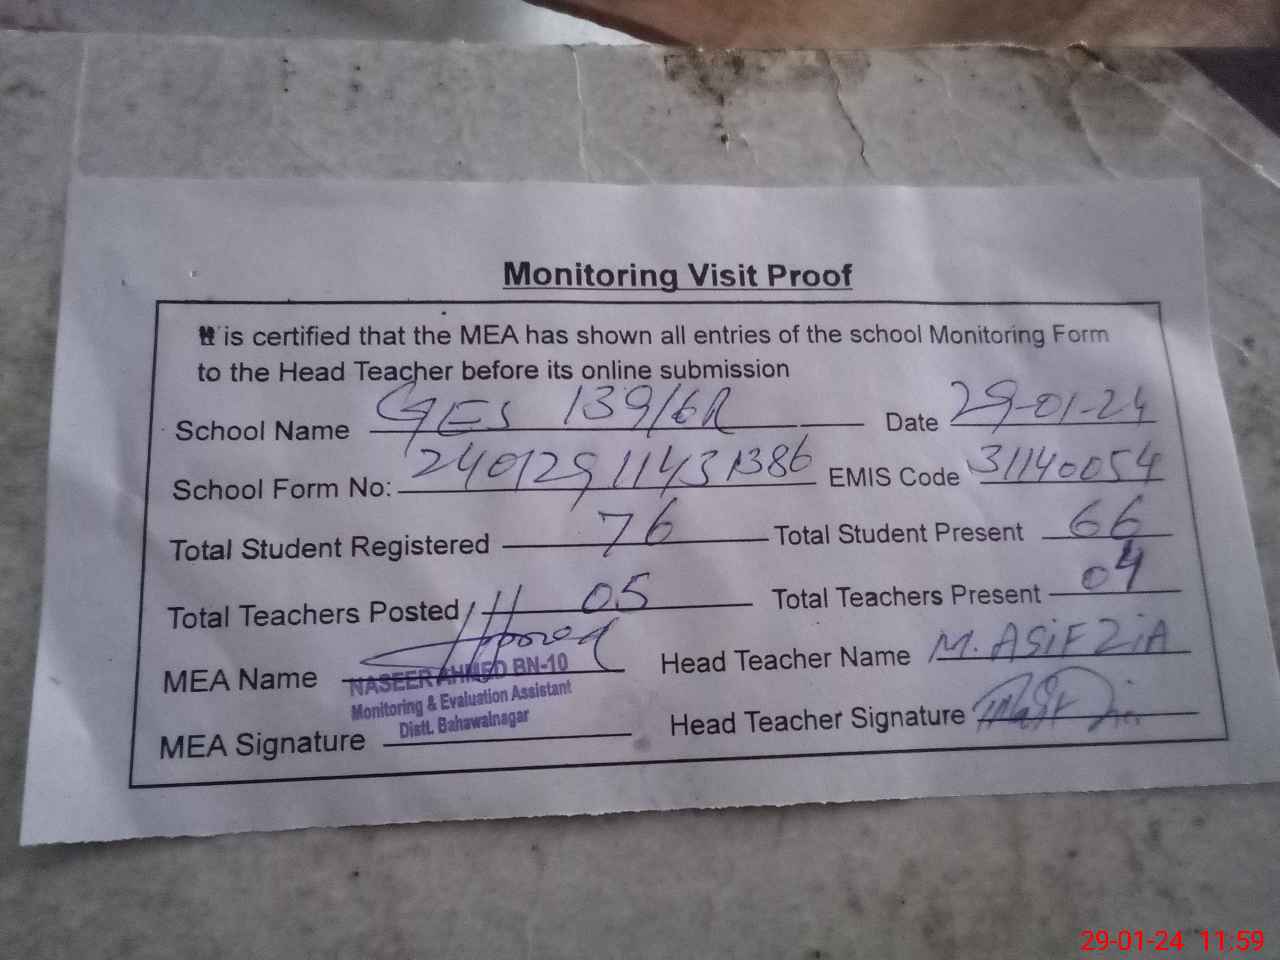 Monitoring Visit Proof
It is certified that the MEA has shown all entries of the school Monitoring Form
to the Head Teacher before its online submission
School Name GES 139/6R Date 29-01-24
School Form No: 24012911431386 EMIS Code 31140054
Total Student Registered 76 Total Student Present 66
Total Teachers Posted 05 Total Teachers Present 04
MEA Name Head Teacher Name M. ASiF ZiA
NASEER AHMED BN-10
Monitoring & Evaluation Assistant
Distt. Bahawalnagar
MEA Signature Head Teacher Signature
29-01-24 11:59